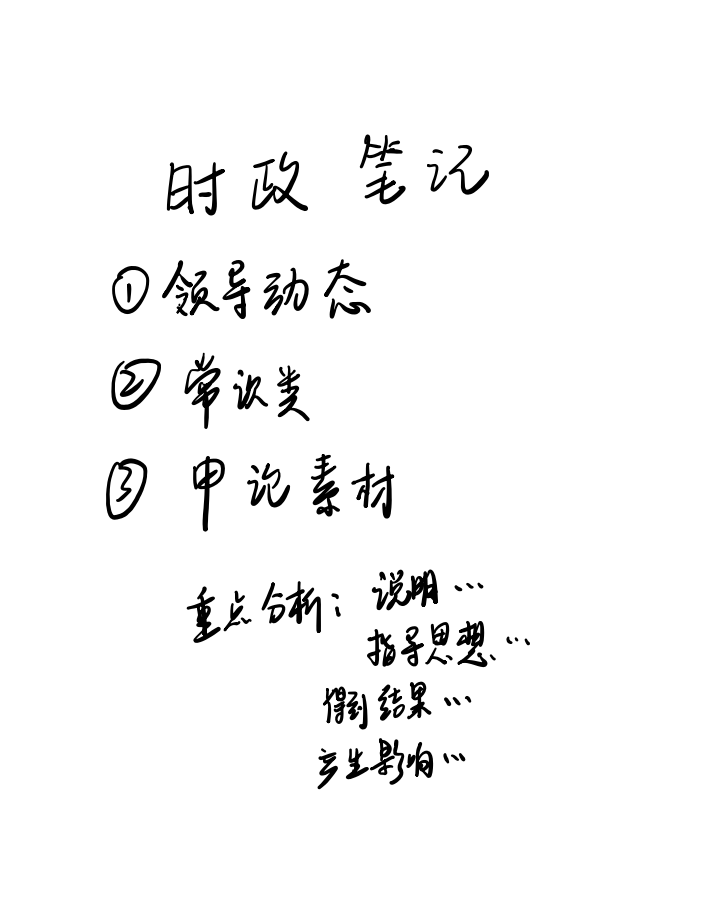 时政 笔记
①领导动态
②常识类
③申论素材
重点分析：说明…
指导思想…
得到结果…
产生影响…